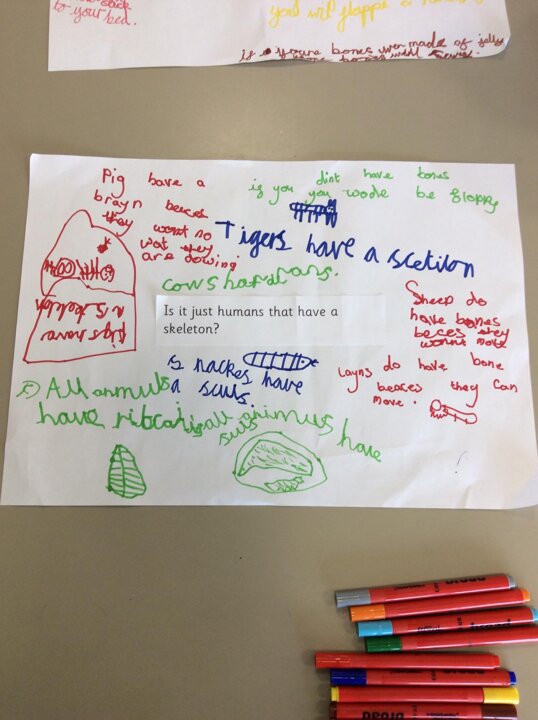 to your bed.
if youre bones wer made of jelly
Pig have a
brayn beeces
they wont no
wat they
are dowing
if you dint have bones
you wode be floppy
Tigers have a scetilon
cows
Is it just humans that have a
skeleton?
Sheep do
have bones
beces they
wont move
pigs have
s nackes have
a sculs.
layns do have bone
beaces they can
move.
All anmuls
have ribcar
all animus have
suls